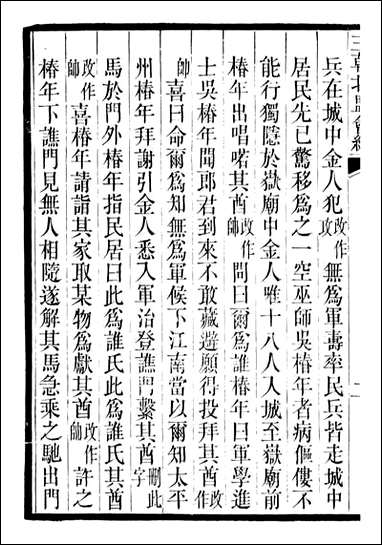 三朝北盟會編
兵在城中金人犯改作攻無爲軍壽率民兵皆走城中
居民先已驚移爲之一空巫師吳椿年者病傴僂不
能行獨隱於嶽廟中金人唯十八人入城至嶽廟前
椿年出唱喏其酋改作帥問曰爾爲誰椿年曰軍學進
士吳椿年聞郎君到來不敢藏避願得投拜其酋改作
帥喜曰命爾爲知無爲軍候下江南當以爾知太平
州椿年拜謝引金人悉入軍治登譙門繫其酋刪此字
馬於門外椿年指民居曰此爲誰氏此爲誰氏其酋
改作帥喜椿年請詣其家取某物爲獻其酋改作帥許之
椿年下譙門見無人相隨遂解其馬急乘之馳出門